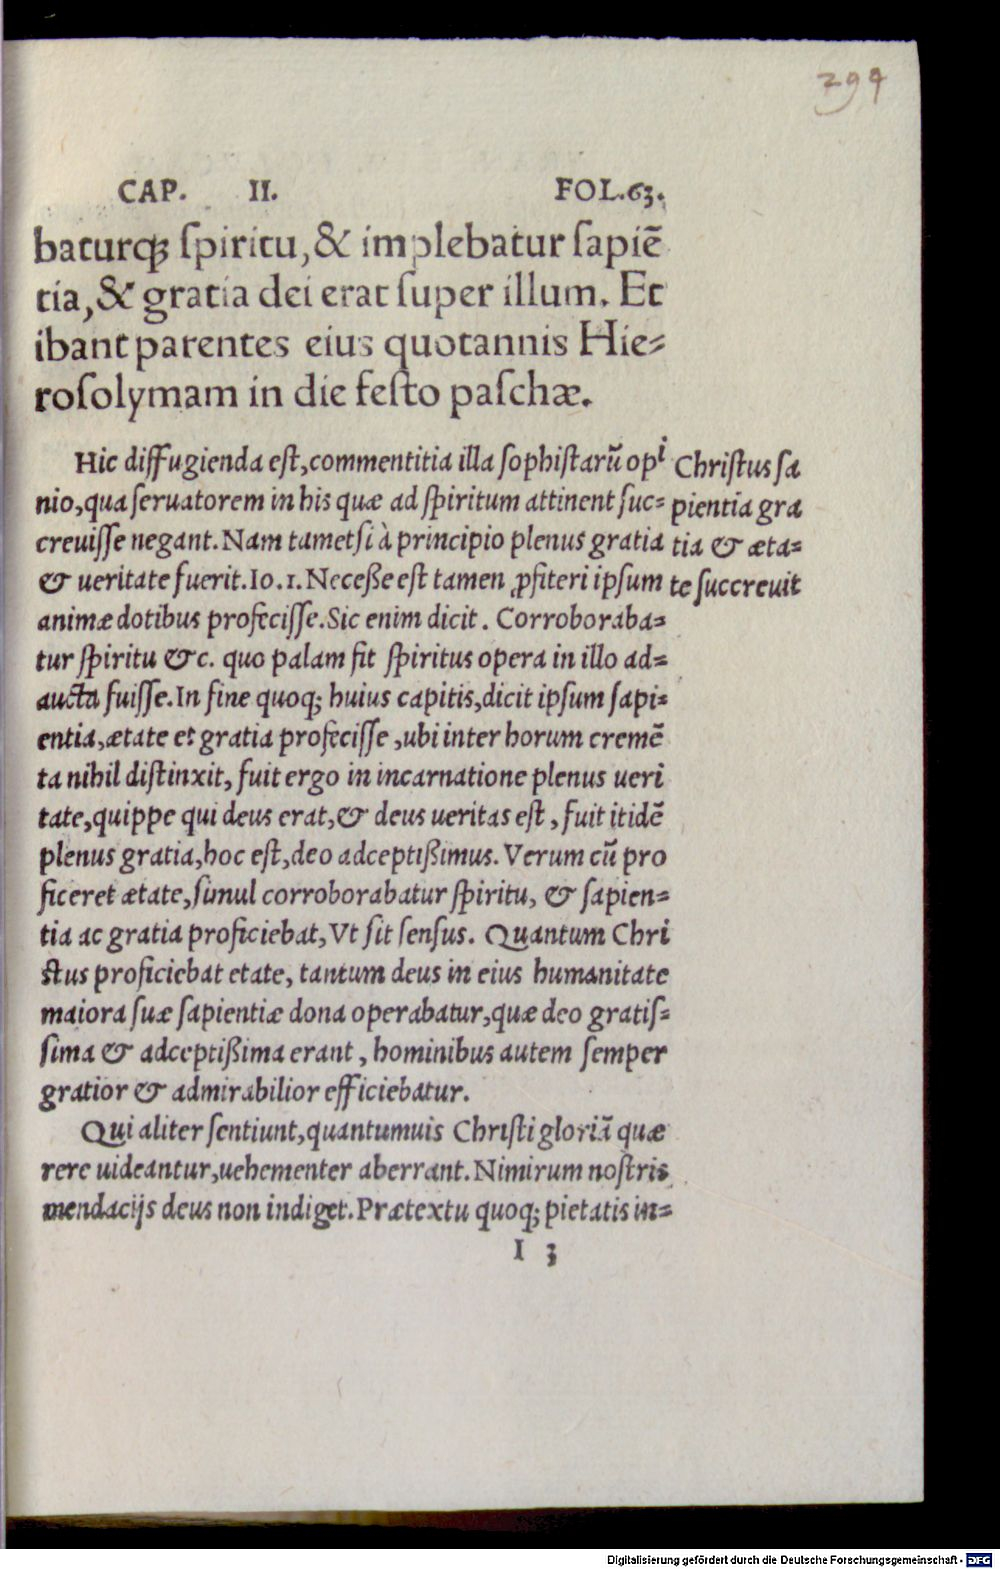 294
CAP. II. FOL.63.
baturqꝫ ſpiritu, & implebatur ſapiẽ
tia, & gratia dei erat ſuper illum. Et
ibant parentes eius quotannis Hie⸗
roſolymam in die feſto paſchæ.
Hic diffugienda eſt, commentitia illa ſophiſtarũ opi
nio, qua ſeruatorem in his quæ ad ſpiritum attinent ſuc⸗
creuiſſe negant. Nam tametſi à principio plenus gratia
& ueritate fuerit. Io. 1. Neceße eſt tamen ꝓfiteri ipſum
animæ dotibus profeciſſe. Sic enim dicit. Corroboraba⸗
tur ſpiritu &c. quo palam fit ſpiritus opera in illo ad⸗
aucta fuiſſe. In fine quoqꝫ huius capitis, dicit ipſum ſapi⸗
entia, ætate et gratia profeciſſe, ubi inter horum cremẽ
ta nihil diſtinxit, fuit ergo in incarnatione plenus ueri
tate, quippe qui deus erat, & deus ueritas eſt, fuit itidẽ
plenus gratia, hoc eſt, deo adceptißimus. Verum cũ pro
ficeret ætate, ſimul corroborabatur ſpiritu, & ſapien⸗
tia ac gratia proficiebat, Vt ſit ſenſus. Quantum Chri
ſtus proficiebat etate, tantum deus in eius humanitate
maiora ſuæ ſapientiæ dona operabatur, quæ deo gratiſ⸗
ſima & adceptißima erant, hominibus autem ſemper
gratior & admirabilior efficiebatur.
Qui aliter ſentiunt, quantumuis Chriſti gloriã quæ
rere uideantur, uehementer aberrant. Nimirum noſtris
mendacijs deus non indiget. Prætextu quoqꝫ pietatis in⸗
I 3
Chriſtus ſa
pientia gra
tia & æta⸗
te ſuccreuit
Digitalisierung gefördert durch die Deutsche Forschungsgemeinschaft - DFG